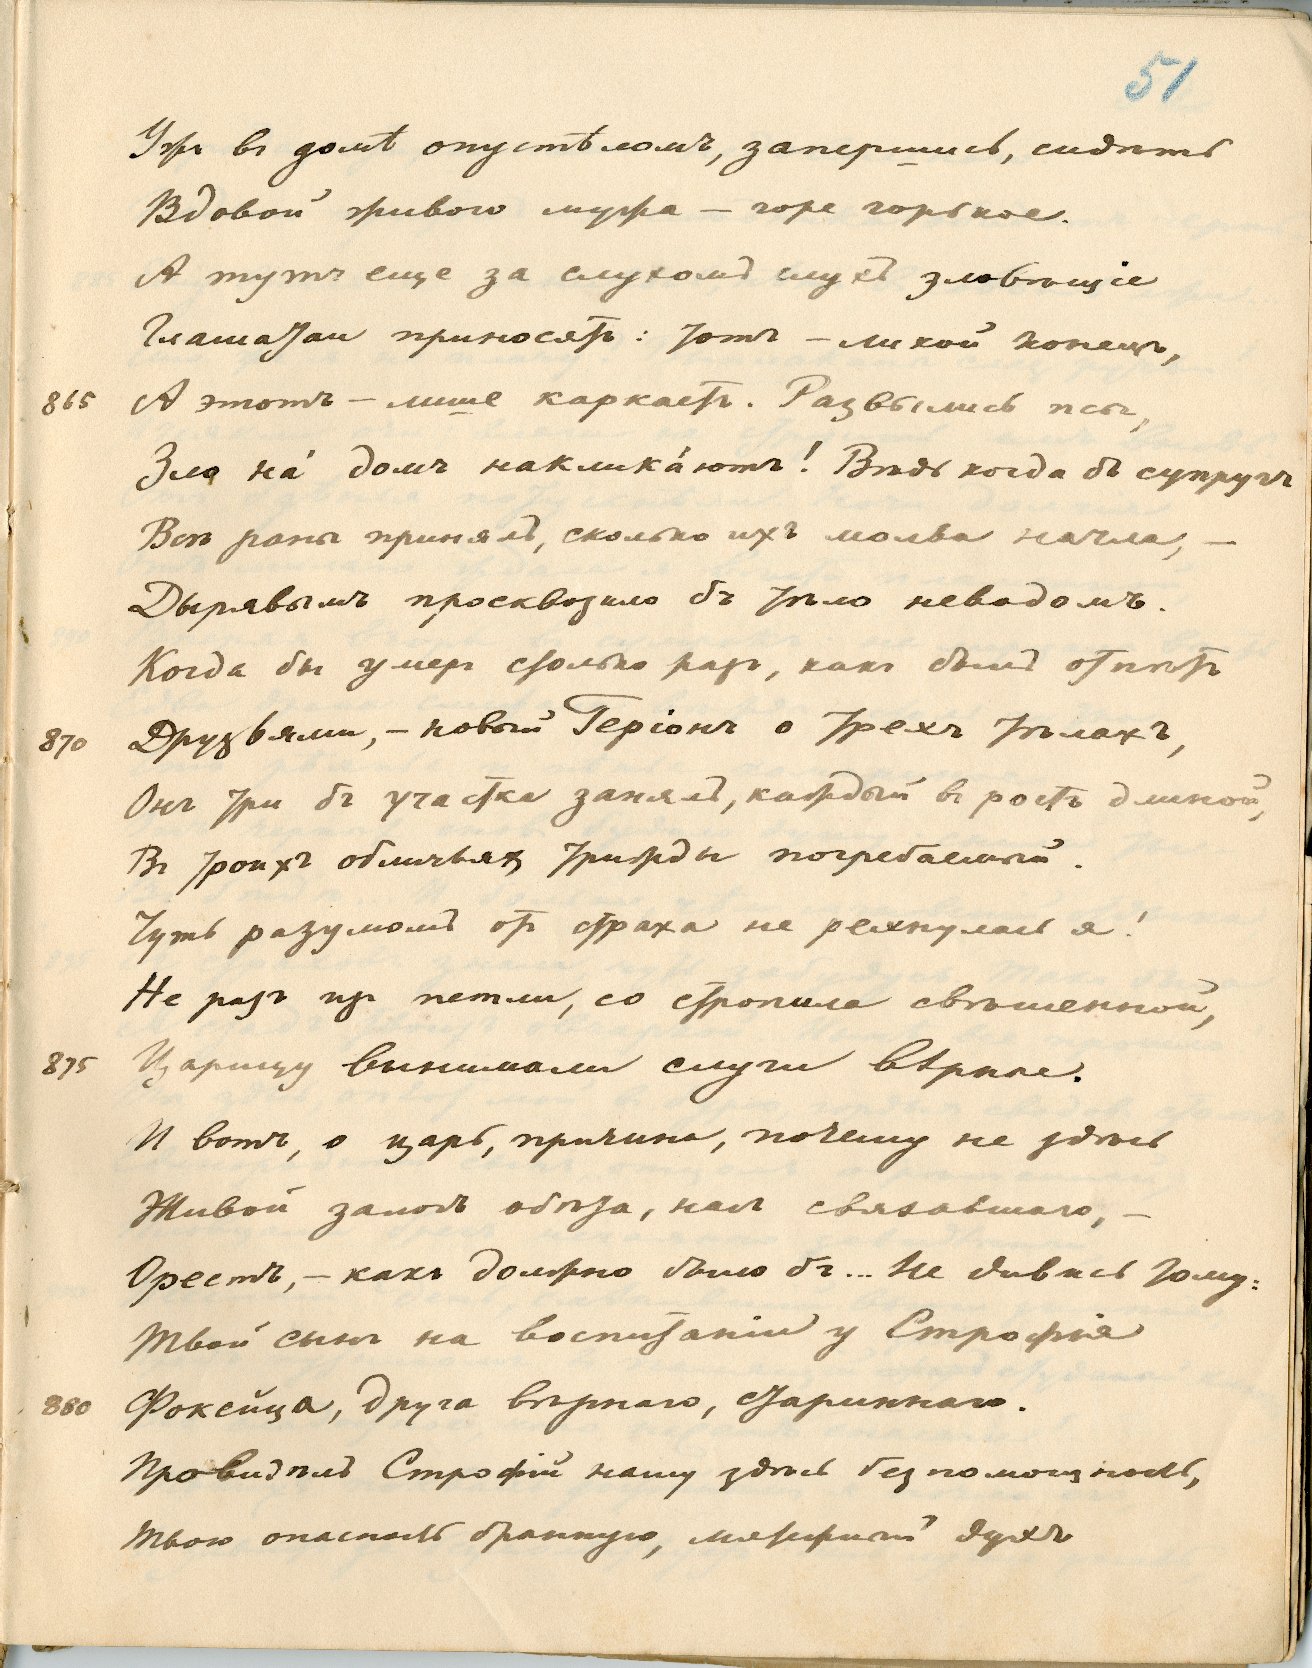 51
Ужъ въ домѣ опустѣломъ, запершись, сидѣть
Вдовой живого мужа – горе горькое.
А тутъ еще за слухомъ слухъ зловѣщіе
Глашатаи приносятъ: тотъ – лихой конецъ,
865 А этотъ – лише каркаетъ. Развылись псы,
Зло на́ домъ наклика́ютъ! Вѣдь когда бъ супругъ
Всѣ раны принялъ, сколько ихъ молва начла, –
Дырявымъ просквозило бъ тѣло неводомъ.
Когда бы умеръ столько разъ, какъ былъ отпѣтъ
870 Друзьями, – новый Геріонъ о трехъ тѣлахъ,
Онъ три бъ участка занялъ, каждый въ ростъ длиной,
Въ троихъ обличьяхъ трижды погребаемый.
Чуть разумомъ отъ страха не рехнулась я!
Не разъ изъ петли, со стропила свѣшенной,
875 Царицу вынимали слуги вѣрные.
И вотъ, о царь, причина, почему не здѣсь
Живой залогъ обѣта, насъ связавшаго, –
Орестъ, – какъ должно было бъ... Не дивись тому:
Твой сынъ на воспитаніи у Строфія
880 Фокейца, друга вѣрнаго, стариннаго.
Провидѣлъ Строфій нашу здѣсь безпомощность,
Твою опасность бранную, мятежный духъ